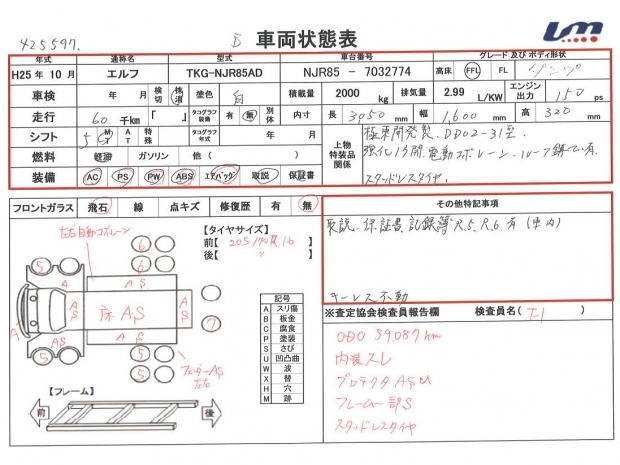 425597.
車両状態表
Um
年式 通称名 型式 車台番号 グレード 及び ボディ形状
H25 年 10 月 エルフ TKG-NJR85AD NJR85 - 7032774 高床 FFL FL ダンプ
車検 年 月 検切 検済 塗色 白 積載量 2000 kg 排気量 2.99 L/KW エンジン出力 150 ps
走行 60 千km 「 」 タコグラフ装備 有 無 別体 内寸 長 3050 mm 幅 1,600 mm 高 320 mm
シフト 5 MT AT 特殊 タコグラフ年式 年 月
上物特装品関係
極東開発製. DD02-31型.
強化ﾅﾐ開 電動コボレーン. ルーフ錆てい有.
スタッドレスタイヤ.
燃料 軽油 ガソリン 他 ( )
装備 AC PS PW ABS エアバッグ 取説 保証書
フロントガラス 飛石 線 点キズ 修復歴 有 無
その他特記事項
取説. 保証書. 記録簿 R.5. R.6 有 (車内)
キーレス不動
左右自動コボレーン
【タイヤサイズ】
前【 205/70R16 】
後【 〃 】
6
6
5
5
5
5
7
A
A
A
S
A
S
床 A,S
フェンダーAS
左右
記号
A スリ傷
B 板金
C 腐食
P 塗装
S さび
U 凹凸曲
W 波
X 替
H 穴
M 跡
【フレーム】
前
後
※査定協会検査員報告欄 検査員名 ( T-1 )
ODO 59,087 km
内装スレ
プロテクタ ASU
フレーム一部S
スタッドレスタイヤ